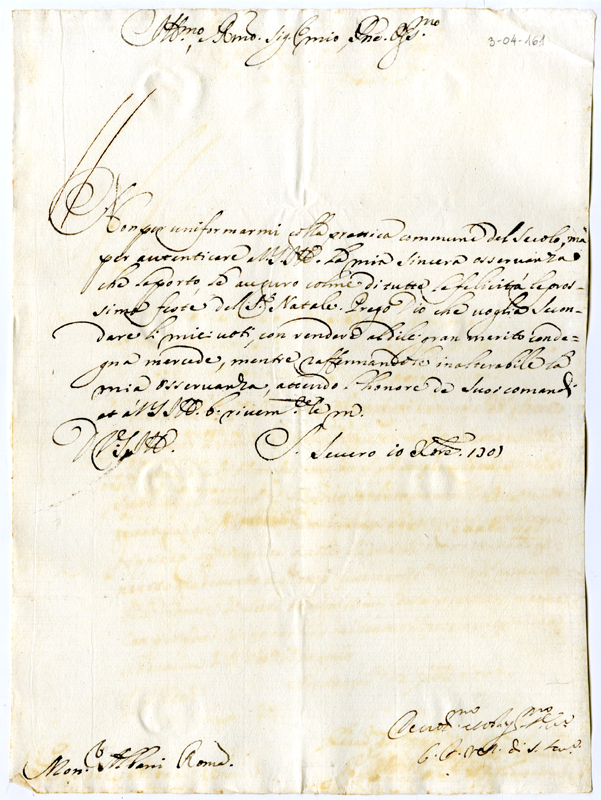 Ill.mo, R.mo. Sig. e mio, Pne. Oss.mo
3-04-161
Non per uniformarmi colla prattica commune del secolo, mà
per autenticare à V.S. Ill. la mia sincera osservanza
che le porto, le auguro colme di tutte le felicità le pros-
sime feste del S. Natale. Prego Dio che voglia secon-
dare li miei voti, con rendere al di lei gran merito conde-
gna mercede, mentre raffermandole inalterabile la
mia osservanza, attendo l'honore de suoi comandi
et à V.S. Ill. b. rivem.te le m.
D. V.S. Ill. S. Severo 10 Xbre. 1701
Devot.mo et oblig.mo
di S. Sev.
Mon.r Albani Roma.